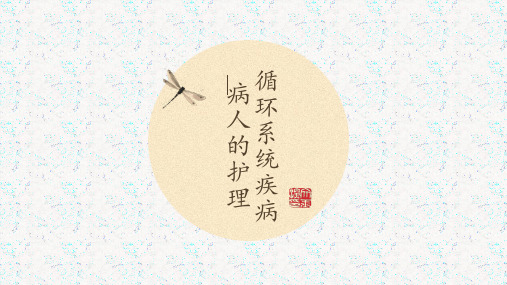 循环系统疾病
病人的护理